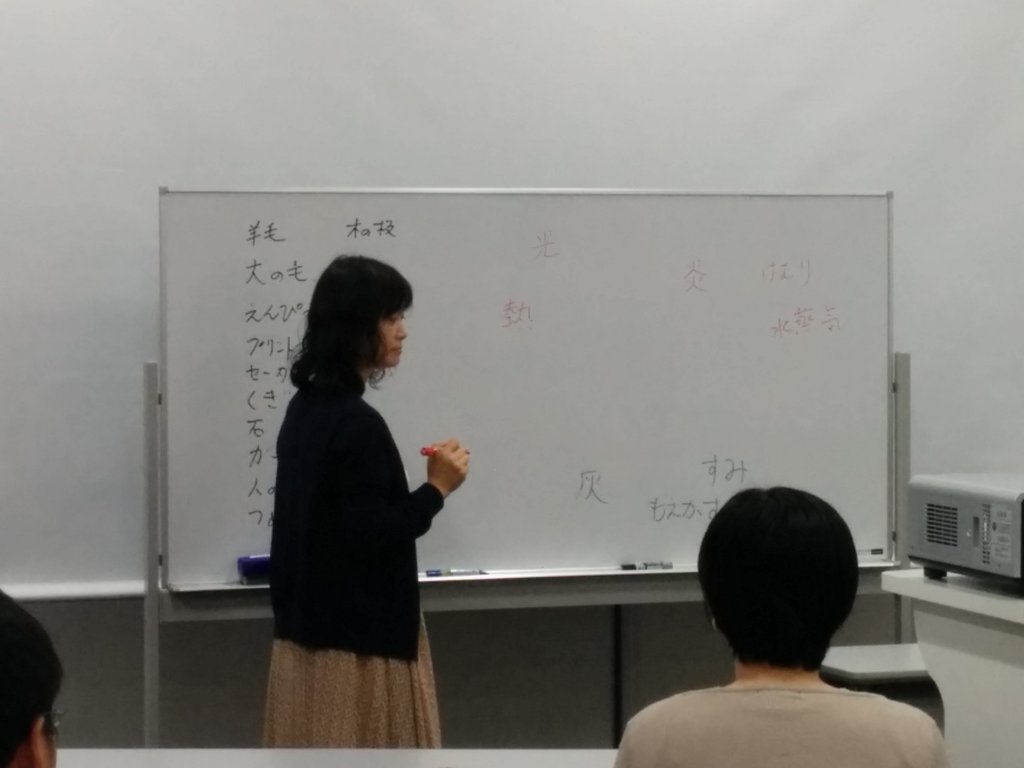 羊毛 木の板
犬のも
えんぴ
プリント
セータ
くき
石
ガ
人の
つめ
光
熱
炎 けむり
水蒸気
灰 すみ
もえかす